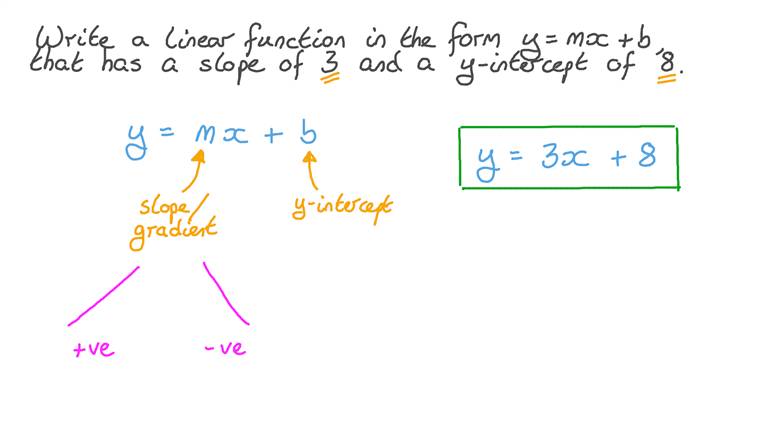 Write a linear function in the form y = mx + b,
that has a slope of 3 and a y-intercept of 8.
y = mx + b
y = 3x + 8
slope/
gradient
y-intercept
+ve
-ve